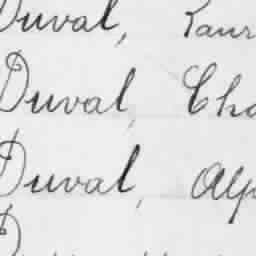 Duval, Laur
Duval, Cha
Duval, Alp